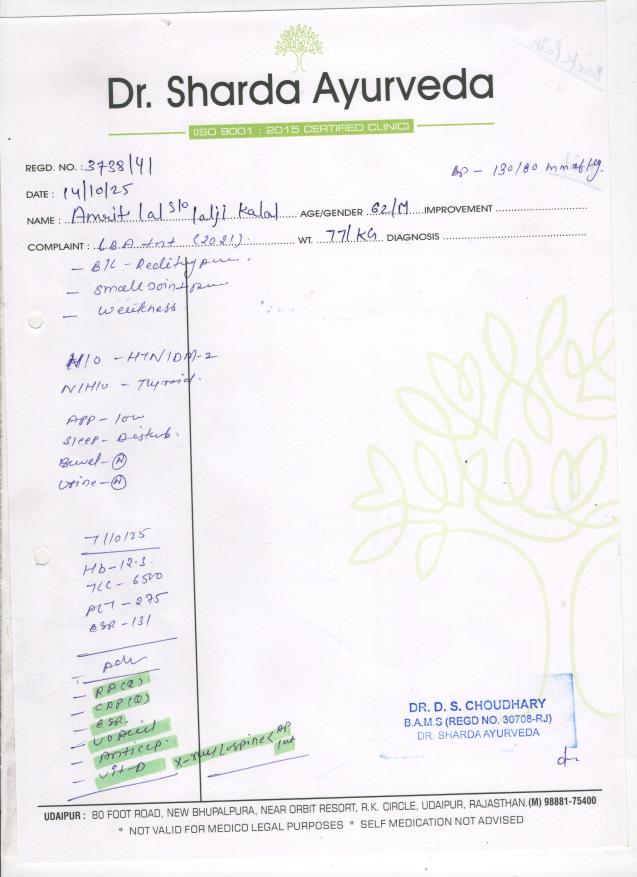 Back Pain
Dr. Sharda Ayurveda
[ISO 9001 : 2015 CERTIFIED CLINIC]
REGD. NO. : 3738/41
BP - 130/80 mm of Hg.
DATE : 14/10/25
NAME : Amrit lal s/o lalji Kalal AGE/GENDER 62/M IMPROVEMENT
COMPLAINT : L.B.A (2021). WT. 77/KG DIAGNOSIS
- B/L -
- Small Joint
- Weakness
H/O - HTN/DM-2
N/H/O - Thyroid.
APP - low
Sleep - Disturb.
Bowel - (N)
Urine - (N)
7/10/25
Hb - 12.3.
TLC - 6500
PLT - 275
ESR - 131
Adv
- RA(Q)
- CRP(Q)
- ESR.
- U. Acid
- Anti CCP.
- Vit-D X-ray L/spine < AP
Lat
DR. D. S. CHOUDHARY
B.A.M.S (REGD NO. 30708-RJ)
DR. SHARDA AYURVEDA
UDAIPUR : 80 FOOT ROAD, NEW BHUPALPURA, NEAR ORBIT RESORT, R.K. CIRCLE, UDAIPUR, RAJASTHAN.(M) 98881-75400
* NOT VALID FOR MEDICO LEGAL PURPOSES * SELF MEDICATION NOT ADVISED